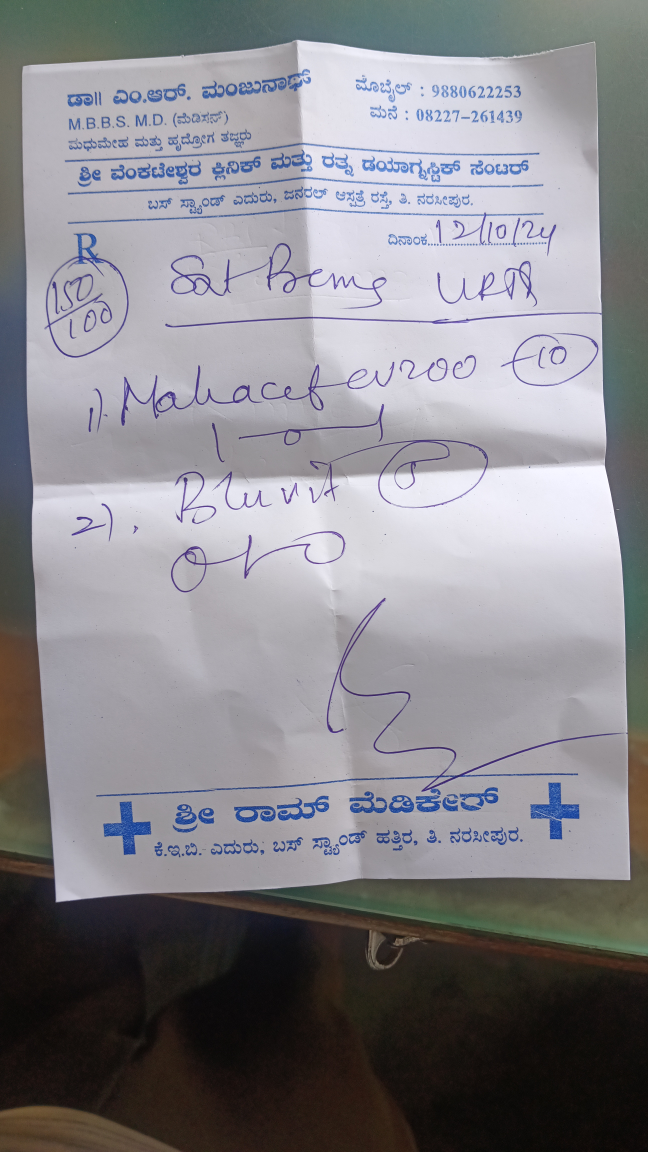 ಡಾ|| ಎಂ.ಆರ್. ಮಂಜುನಾಥ್
ಮೊಬೈಲ್ : 9880622253
M.B.B.S. M.D. (ಮೆಡಿಸನ್)
ಮನೆ : 08227-261439
ಮಧುಮೇಹ ಮತ್ತು ಹೃದ್ರೋಗ ತಜ್ಞರು
ಶ್ರೀ ವೆಂಕಟೇಶ್ವರ ಕ್ಲಿನಿಕ್ ಮತ್ತು ರತ್ನ ಡಯಾಗ್ನಸ್ಟಿಕ್ ಸೆಂಟರ್
ಬಸ್ ಸ್ಟ್ಯಾಂಡ್ ಎದುರು, ಜನರಲ್ ಆಸ್ಪತ್ರೆ ರಸ್ತೆ, ತಿ. ನರಸೀಪುರ.
R
ದಿನಾಂಕ 12/10/24
150/100
1) Mahacef 200 10
1-0-1
2) 5
0-1-0
ಶ್ರೀ ರಾಮ್ ಮೆಡಿಕೇರ್
ಕೆ.ಇ.ಬಿ. ಎದುರು, ಬಸ್ ಸ್ಟ್ಯಾಂಡ್ ಹತ್ತಿರ, ತಿ. ನರಸೀಪುರ.